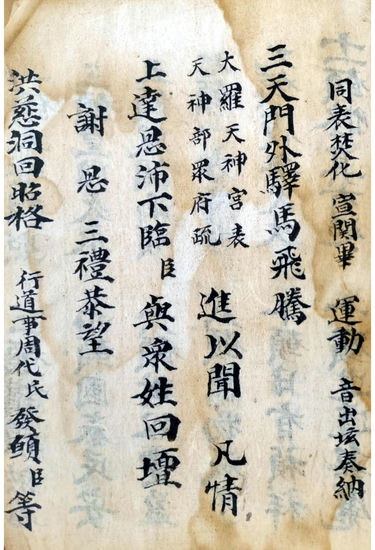 同表焚化 宣関畢 運動 音出坛奏納
三天門外驛馬飛騰
大羅天神宮表
天神部眾府疏
進以聞 凡情
上達恩沛下臨臣 與眾姓回壇
謝恩三禮恭望
洪慈洞回昭格 行道事周代民發 臣等